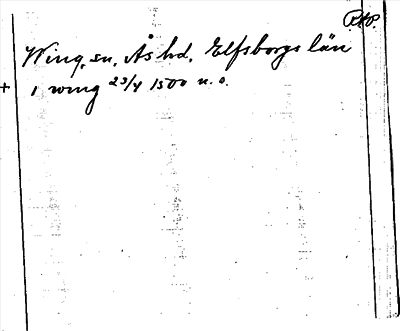 RAP.
Wing. sn. Ås hd. Elfsborgs län
+ i wing 23/4 1500 u. s.